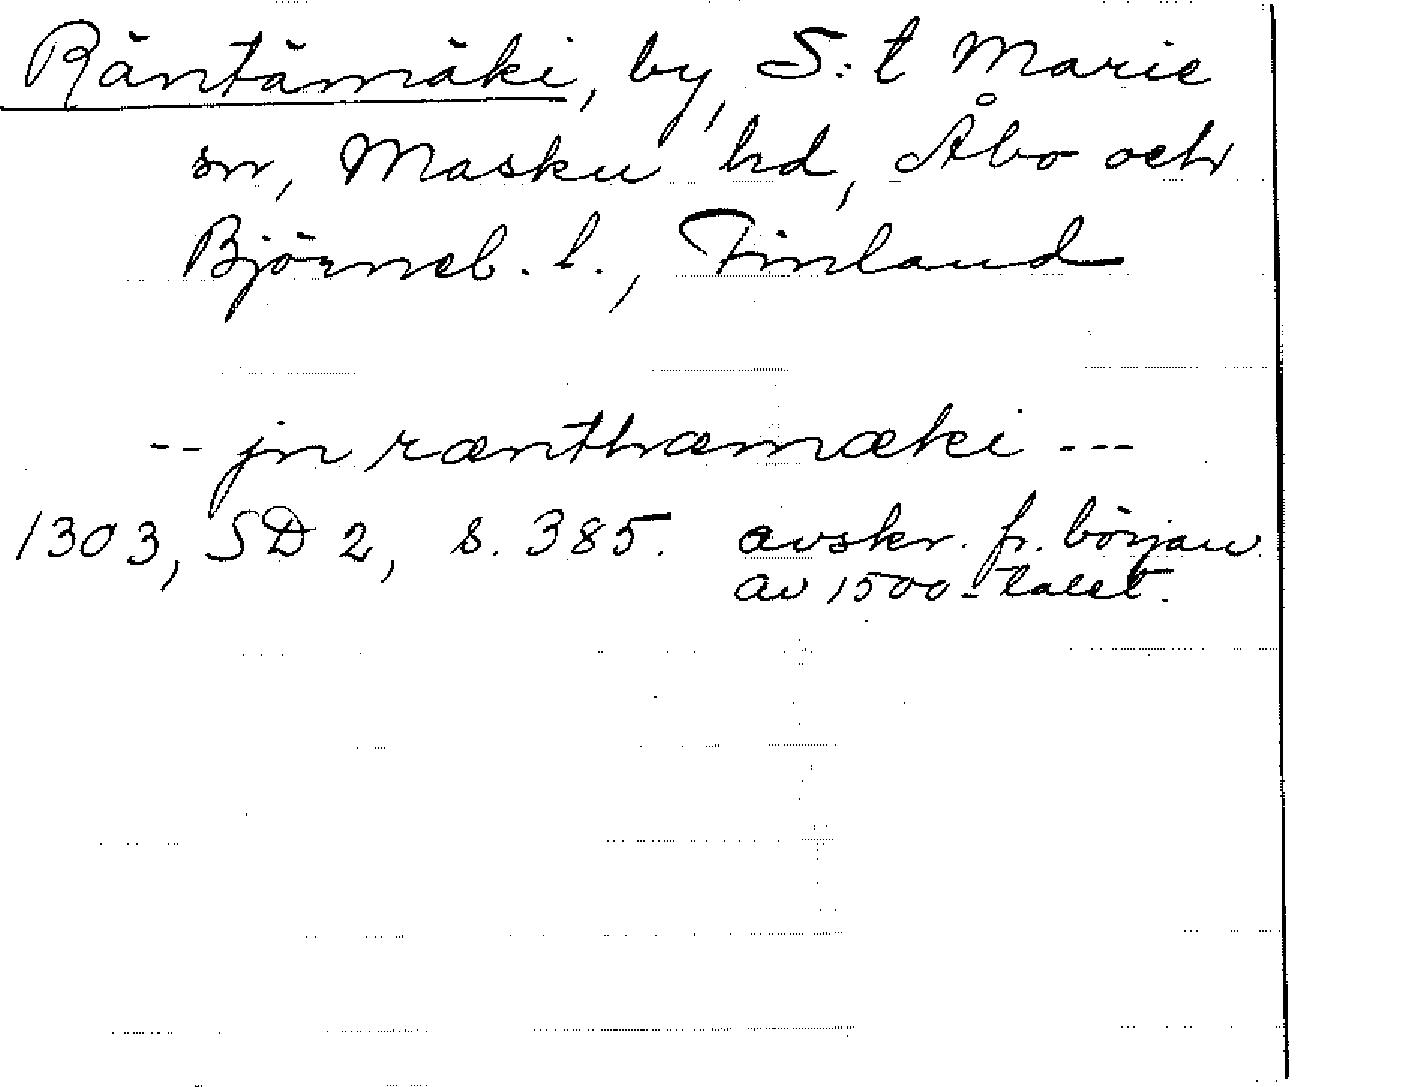 Räntämäki, by, S:t Marie
sn, Masku hd, Åbo och
Björneb. l., Finland
-- jn rænthæmæki ---
1303, SD 2, s. 385. avskr. fr. början
av 1500-talet.